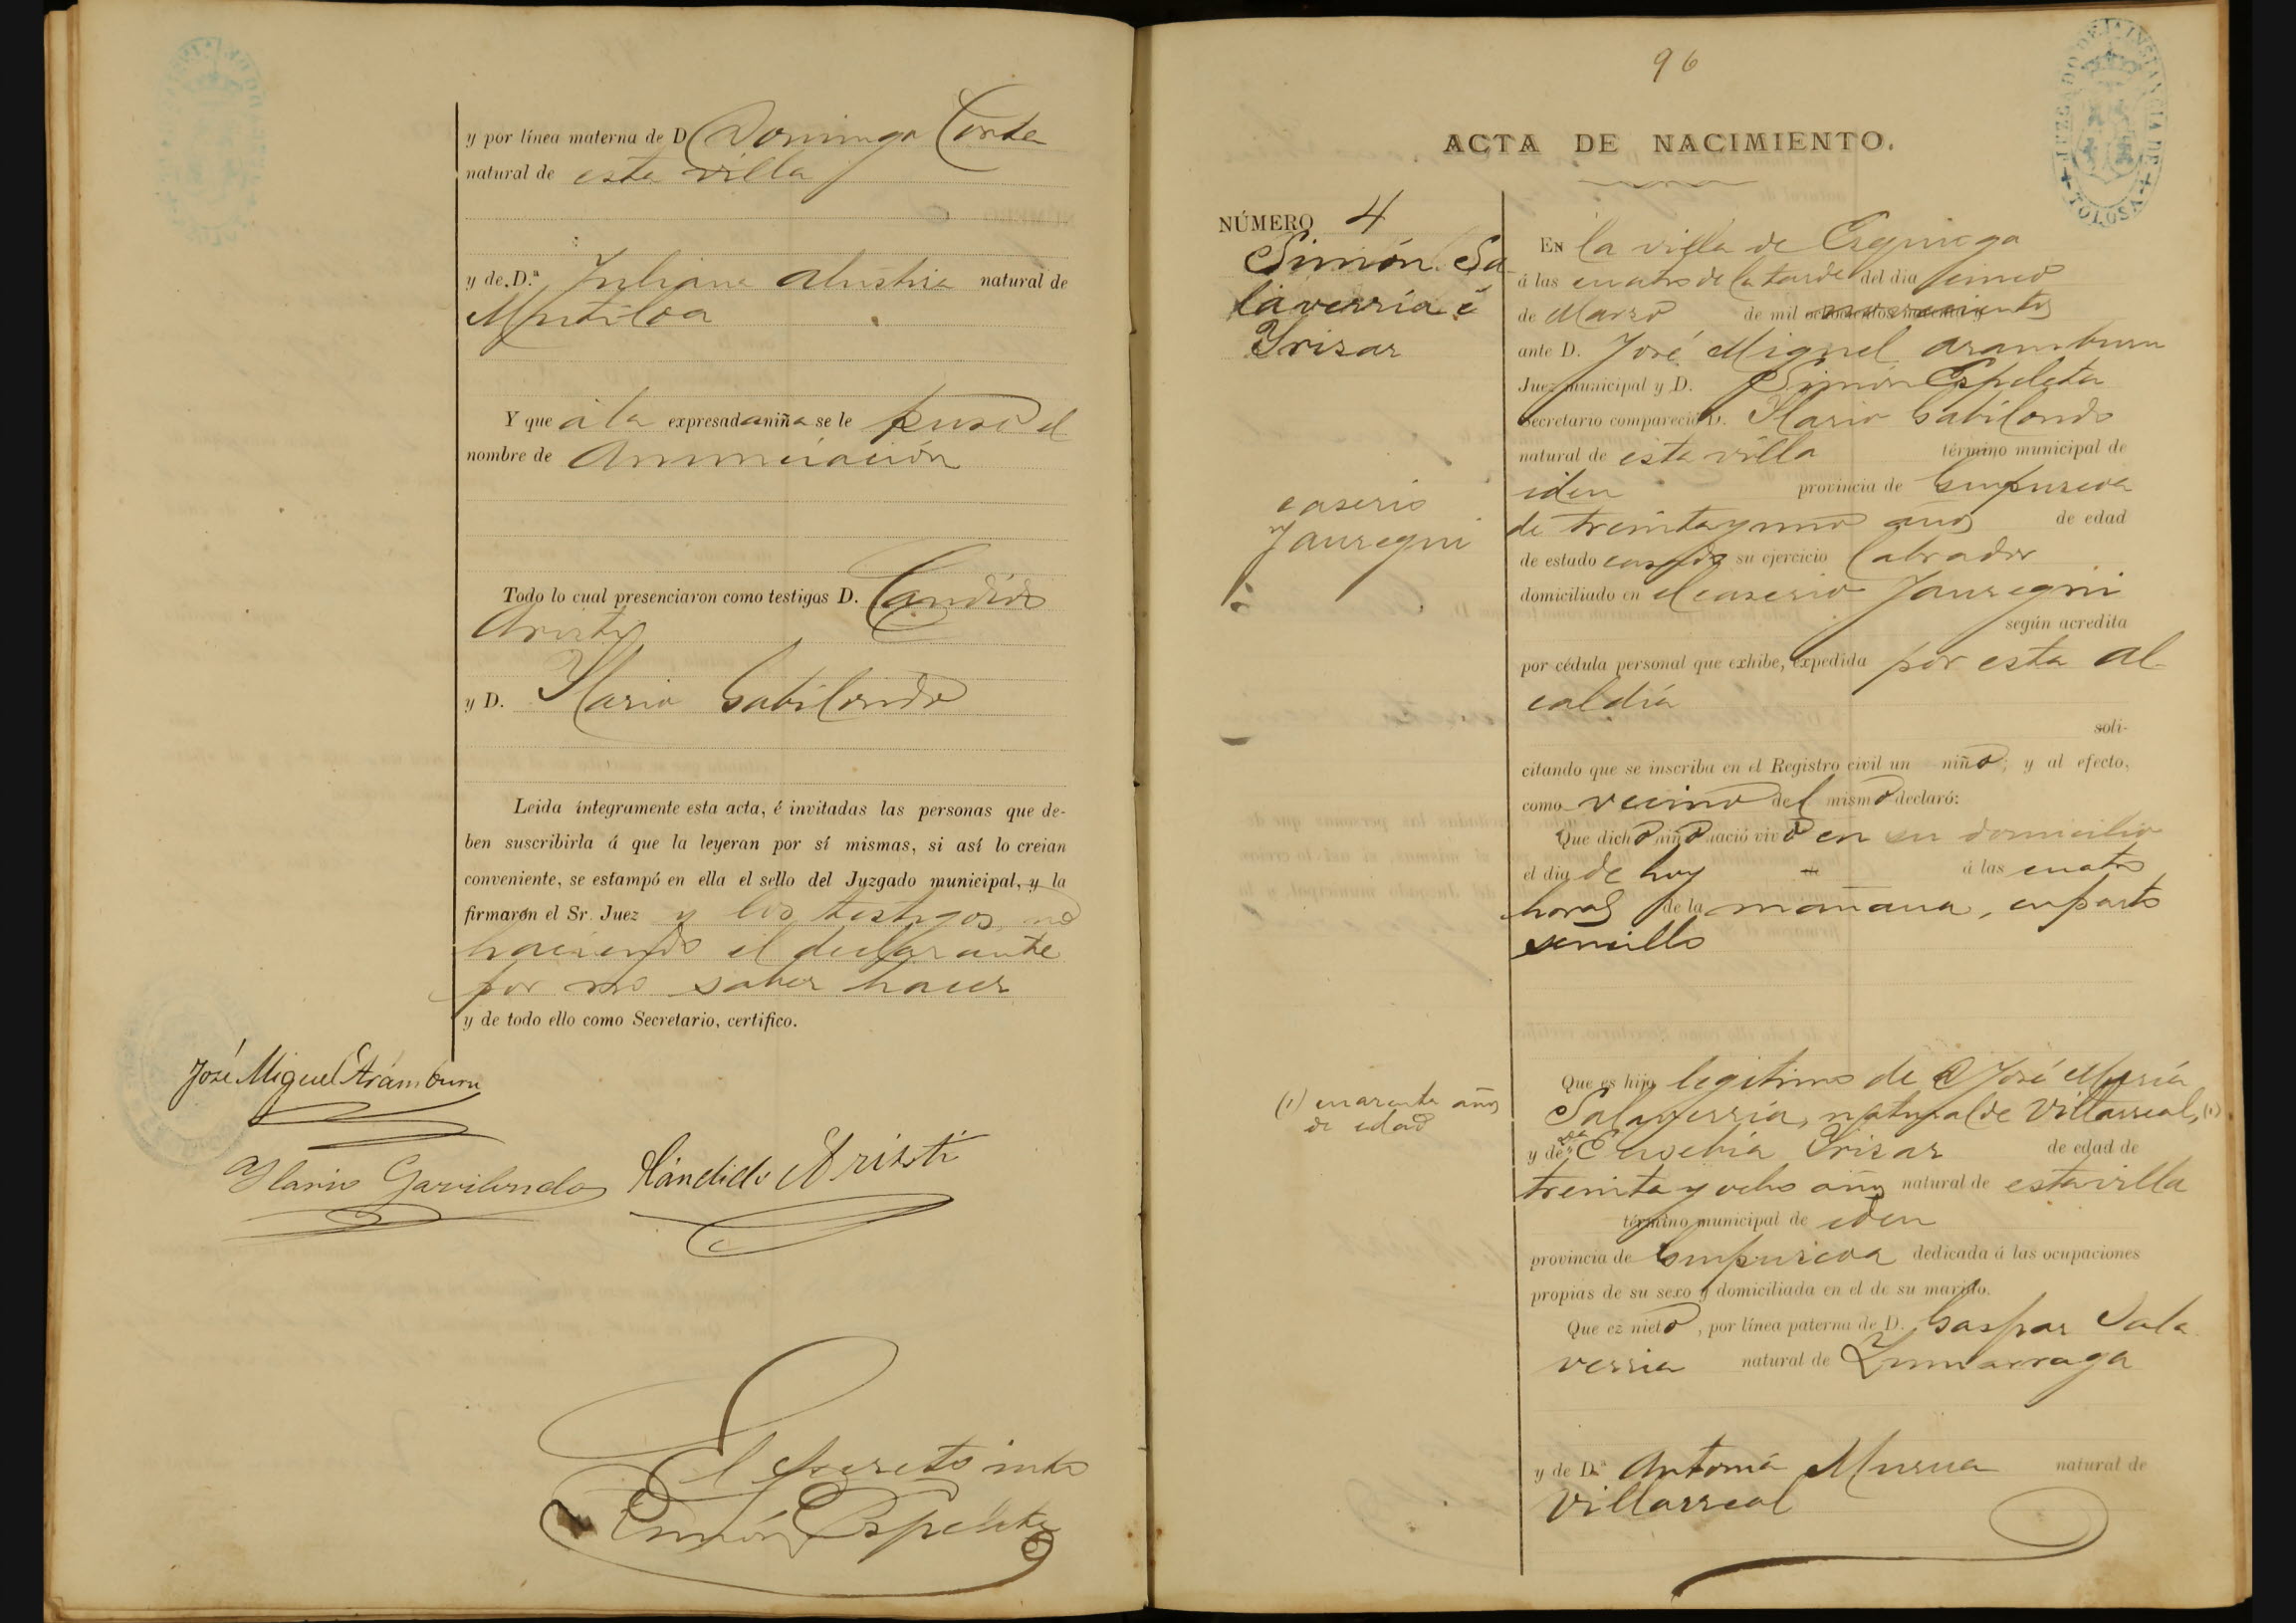 y por línea materna de D Domingo Conde
natural de esta villa
y de D.ª Juliana Alustiza natural de
Mutiloa
Y que á la expresada niña se le puso el
nombre de Anunciación
Todo lo cual presenciaron como testigos D. Candido
Aristi
y D. Ylario Gabilondo
Leida íntegramente esta acta, é invitadas las personas que de-
ben suscribirla á que la leyeran por sí mismas, si así lo creian
conveniente, se estampó en ella el sello del Juzgado municipal, y la
firmarón el Sr. Juez y los testigos, no
haciendo el declarante
por no saber hacer
y de todo ello como Secretario, certifico.
José Miguel Arámburu
Ylario Gavilondo Cándido Aristi
El Secreto into
Simón Espeleta
96
JUZGADO DE 1ª INSTANCIA DE TOLOSA
ACTA DE NACIMIENTO.
NÚMERO 4
Simón Sa
laverria é
Yrizar
caserio
Jauregui
En la villa de Ezquioga
á las cuatro de la tarde del dia cinco
de Marzo de mil novecientos
ante D. José Miguel Aramburu
Juez municipal y D. Simón Espeleta
Secretario compareció D. Ylario Gabilondo
natural de esta villa término municipal de
iden provincia de Guipuzcoa
de treinta y uno años de edad
de estado casado su ejercicio labrador
domiciliado en el caserio Jauregui
según acredita
por cédula personal que exhibe, expedida por esta al
caldía
soli-
citando que se inscriba en el Registro civil un niño; y al efecto,
como vecino del mismo declaró:
Que dicho niño nació vivo en su domicilio
el dia de hoy de á las cuatro
horas de la mañana, en parto
sencillo
(1) cuarenta años
de edad
Que es hijo legitimo de D José María
Salaverria, natural de Villarreal, (1)
y de D.ª Eusebia Yrizar de edad de
treinta y ocho años natural de esta villa
término municipal de iden
provincia de Guipuzcoa dedicada á las ocupaciones
propias de su sexo y domiciliada en el de su marido.
Que es nieto, por línea paterna de D. Gaspar Sala
verria natural de Zumarraga
y de D.ª Antonia Murua natural de
Villarreal